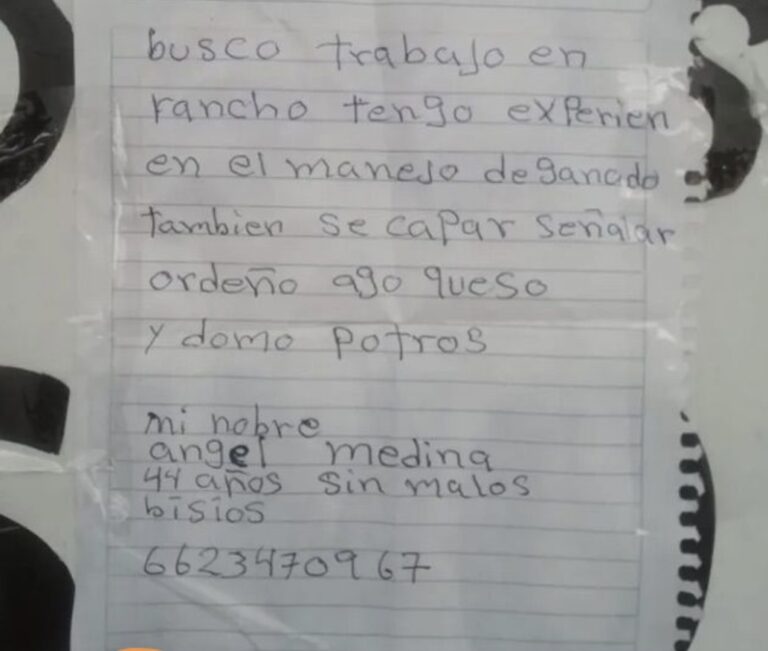 busco trabajo en
rancho tengo experien
en el manejo de ganado
tambien se capar señalar
ordeño ago queso
y domo potros
mi nobre
angel medina
44 años sin malos
bisios
66234709 67